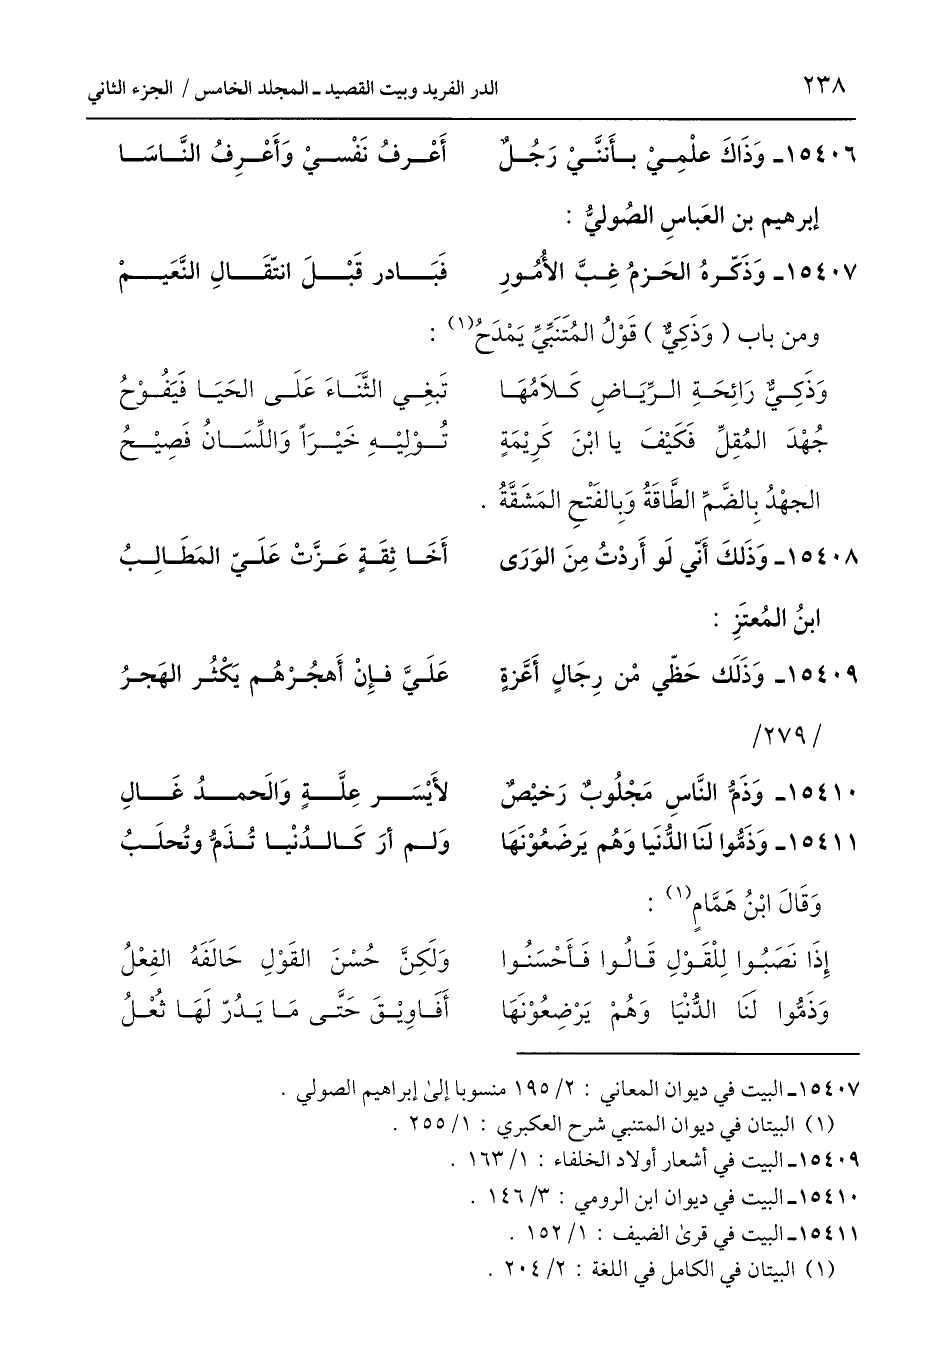 ٢٣٨ الدر الفريد وبيت القصيد ـ المجلد الخامس / الجزء الثاني
١٥٤٠٦ـ وَذَاكَ علْمِيْ بـأَننَّيْ رَجُلٌ أَعْرفُ نَفْسيْ وَأَعْرِفُ النَّاسَا
إبرهيم بن العَباسِ الصُوليُّ :
١٥٤٠٧ـ وَذَكّرهُ الحَزمُ غِبَّ الأُمُورِ فَبَادر قَبْلَ انتّقَالِ النَّعَيمْ
ومن باب ( وَذَكِيٌّ ) قَوْلُ المُتَنَبِّيِّ يَمْدَحُ(١) :
وَذَكِيٌّ رَائِحَةِ الرِّيَاضِ كَلاَمُهَا تَبغِي الثَّنَاءَ عَلَى الحَيَا فَيَفُوْحُ
جُهْدَ المُقِلِّ فَكَيْفَ يا ابْنَ كَرِيْمَةٍ تُوْلِيْهِ خَيْرَاً وَاللِّسَانُ فَصِيْحُ
الجهْدُ بِالضَّمِّ الطَّاقَةُ وَبِالفَتْحِ المَشَقَّةُ .
١٥٤٠٨ـ وَذَلكَ أَنّي لَو أَردْتُ مِنَ الوَرَى أَخَا ثِقَةٍ عَزَّتْ عَلَيّ المَطَالِبُ
ابنُ المُعتَزِ :
١٥٤٠٩ـ وَذَلَك حَظّي مْن رِجَالٍ أَعَّزةٍ عَلَيَّ فإِنْ أَهجُرْهُم يَكْثُر الهَجرُ
/٢٧٩/
١٥٤١٠ـ وَذَمُّ النَّاسِ مَجْلُوبٌ رَخيْصٌ لأَيْسَر عِلَّةٍ وَالحَمدُ غَالِ
١٥٤١١ـ وَذَمُّوا لَنَا الدُّنيَا وَهُم يَرضَعُوْنَهَا وَلم أرَ كَالدُنْيا تُذَمُّ وتُحلَبُ
وَقَالَ ابْنُ هَمَّامٍ(١) :
إِذَا نَصَبُوا لِلْقَوْلِ قَالُوا فَأَحْسَنُوا وَلَكِنَّ حُسْنَ القَوْلِ خَالَفَهُ الفِعْلُ
وَذَمُّوا لَنَا الدُّنْيَا وَهُمْ يَرْضِعُوْنَهَا أَفَاوِيْقَ حَتَّى مَا يَدُرّ لَهَا ثُعْلُ
١٥٤٠٧ـ البيت في ديوان المعاني : ٢/ ١٩٥ منسوبا إلىٰ إبراهيم الصولي .
(١) البيتان في ديوان المتنبي شرح العكبري : ١/ ٢٥٥ .
١٥٤٠٩ـ البيت في أشعار أولاد الخلفاء : ١/ ١٦٣ .
١٥٤١٠ـ البيت في ديوان ابن الرومي : ٣/ ١٤٦ .
١٥٤١١ـ البيت في قرىٰ الضيف : ١/ ١٥٢ .
(١) البيتان في الكامل في اللغة : ٢/ ٢٠٤ .